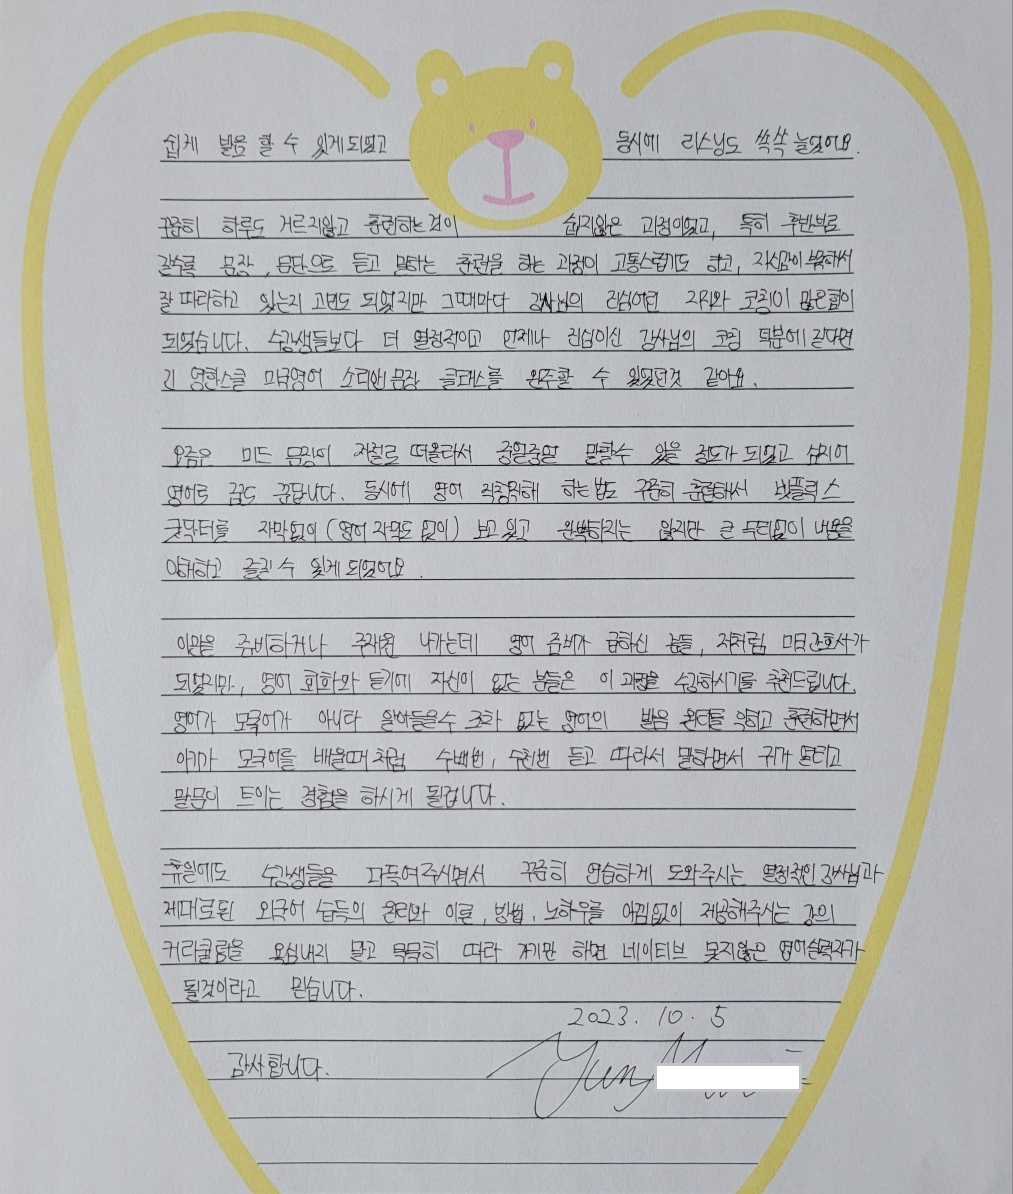 쉽게 발음 할 수 있게되었고 동시에 리스닝도 쑥쑥 늘었어요.
꾸준히 하루도 거르지않고 훈련하는것이 쉽지않은 과정이었고, 특히 후반부로
갈수록 문장, 문단으로 듣고 말하는 훈련을 하는 과정이 고통스럽기도 하고, 자신감이 부족해서
잘 따라하고 있는지 고민도 되었지만 그때마다 강사님의 진심어린 격려와 코칭이 많은힘이
되었습니다. 수강생들보다 더 열정적이고 언제나 진심이신 강사님의 코칭 덕분에 길다면
긴 영한스쿨 미국영어 소리앤문장 클래스를 완주할 수 있었던것 같아요.
요즘은 미드 문장이 저절로 떠올라서 중얼중얼 말할수 있을 정도가 되었고 심지어
영어로 꿈도 꾸답니다. 동시에 영어 직청직해 하는법도 꾸준히 훈련해서 넷플릭스
굿닥터를 자막없이(영어 자막도 없이) 보고 있고 완벽하지는 않지만 큰 무리없이 내용을
이해하고 즐길 수 있게 되었어요.
이민을 준비하거나 주재원 나가는데 영어 준비가 급하신 분들, 저처럼 미국간호사가
되었지만, 영어 회화와 듣기에 자신이 없는 분들은 이 과정을 수강하시기를 추천드립니다.
영어가 모국어가 아니라 알아들을수 조차 없는 영어의 발음 원리를 익히고 훈련하면서
아기가 모국어를 배울때처럼 수백번, 수천번 듣고 따라서 말하면서 귀가 열리고
말문이 트이는 경험을 하시게 될겁니다.
휴일에도 수강생들을 다독여주시면서 꾸준히 연습하게 도와주시는 열정적인 강사님과
제대로된 외국어 습득의 원리와 이론, 방법, 노하우를 아낌없이 제공해주시는 강의
커리큘럼을 욕심내지 말고 묵묵히 따라 가기만 하면 네이티브 못지않은 영어실력자가
될것이라고 믿습니다.
2023. 10. 5
감사합니다. Yun